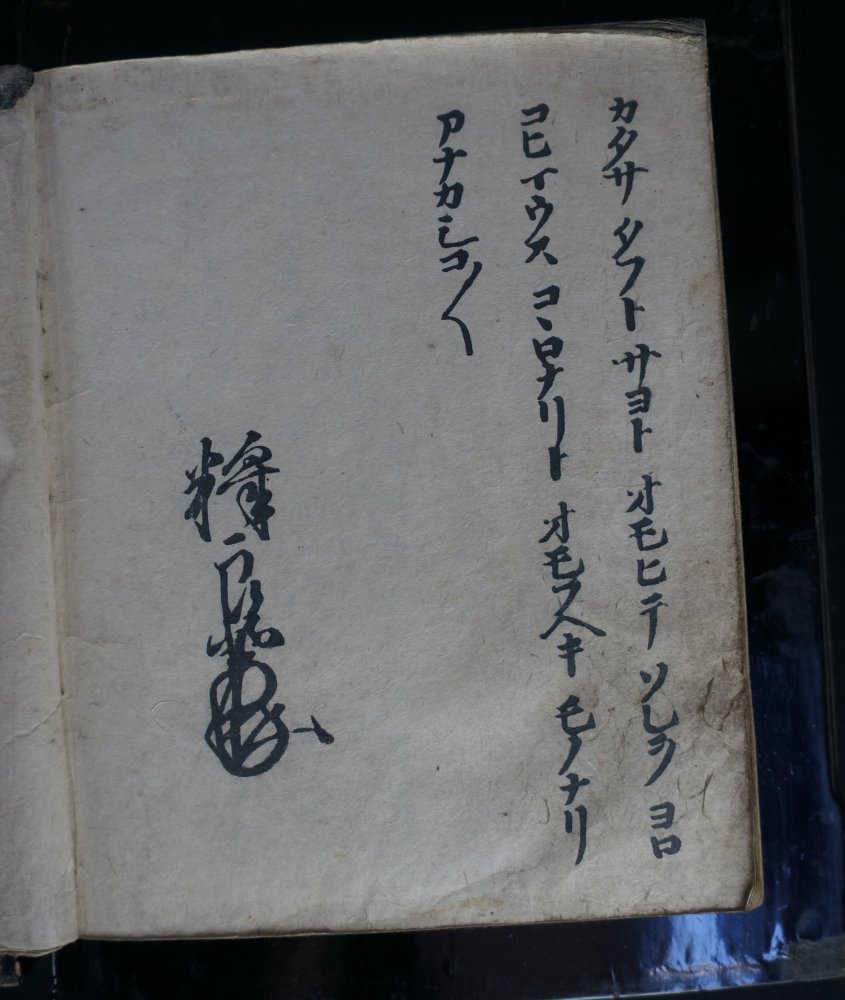 カタサ タフト サヨト オモヒテ ソレヲ ヨロ
コヒマウス コヽロナリト オモフヘキ モノナリ
アナカシコ〱
釋